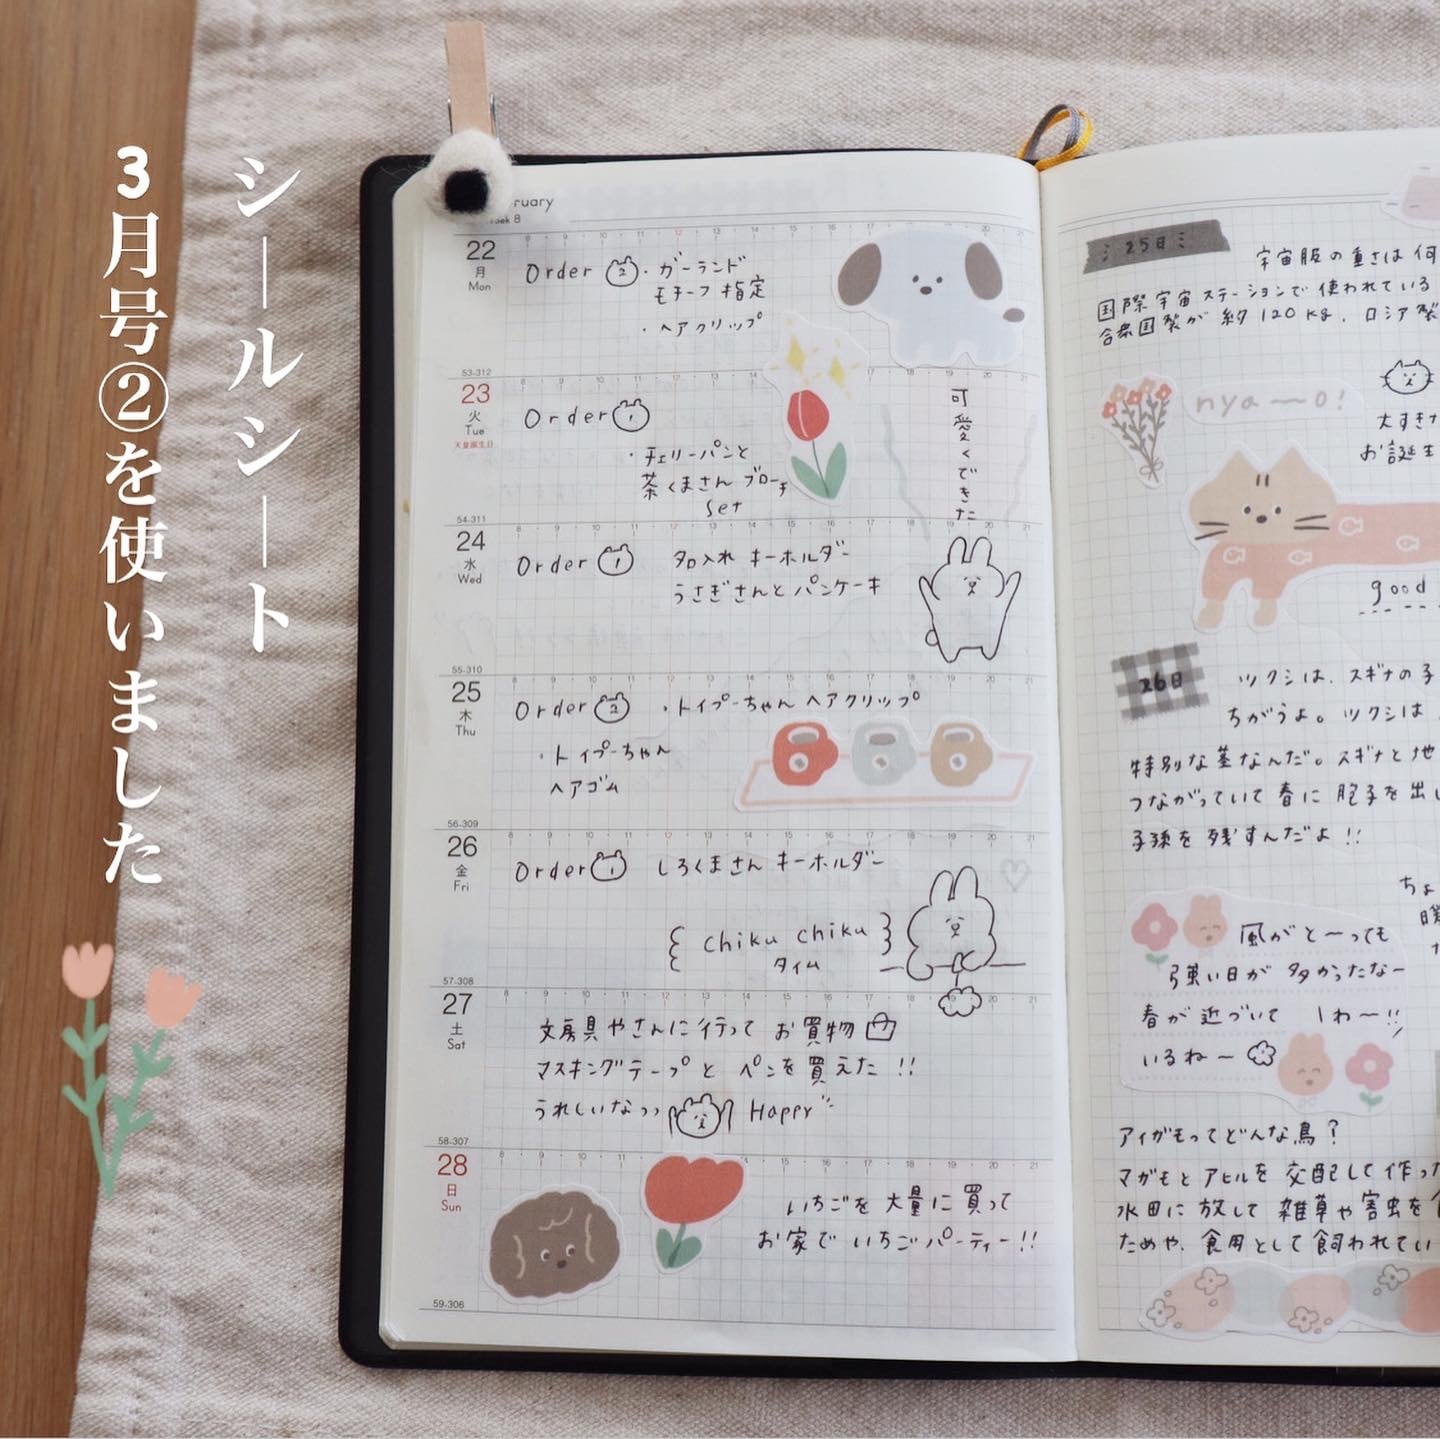 シールシート
3月号②を使いました
ruary
eek 8
22
月
Mon
Order 2 ・ガーランド
モチーフ指定
・ヘアクリップ
53-312
23
火
Tue
天皇誕生日
Order 1
・チェリーパンと
茶くまさん ブローチ
Set
可愛くできた
54-311
24
水
Wed
Order 1 名入れ キーホルダー
うさぎさんとパンケーキ
55-310
25
木
Thu
Order 2 ・トイプーちゃん ヘアクリップ
・トイプーちゃん
ヘアゴム
56-309
26
金
Fri
Order 1 しろくまさん キーホルダー
chiku chiku
タイム
57-308
27
土
Sat
文房具やさんに行って お買物
マスキングテープと ペンを買えた!!
うれしいなっっ Happy
58-307
28
日
Sun
いちごを大量に買って
お家で いちごパーティー!!
59-306
25日
宇宙服の重さは何
国際宇宙ステーションで使われている
合衆国製が 約120kg. ロシア製
nya〜o!
大すきな
お誕生
good
26日
ツクシは、スギナの子
ちがうよ。ツクシは
特別な茎なんだ。スギナと地
つながっていて春に 胞子を出し
子孫を残すんだよ!!
ちょ
暖
風がと〜っても
強い日が 多かったな〜
春が近づいて
いるね〜
しわ〜!!
アイガモってどんな鳥?
マガモとアヒルを交配して作った
水田に放して雑草や害虫を食
ためや、食用として飼われてい